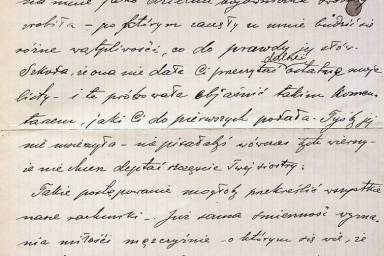 robiła – po którym zaczęły w mnie budzić się
różne wątpliwości, co do prawdy jej słów.
Szkoda, że ona nie dała Ci przeczytać dalsze ostatnie moje
listy – i te próbowała objaśnić takim komen-
tarzem, jaki Ci do pierwszych podała. Tyś jej
nie uwierzyła – nie pisałabyś wówczas tych wierszy
że nie chcesz deptać szczęścia Twej siostry.
Takie postępowanie mogłoby przekreślić wszystkie
nasze rachunki – Już sama zmienność wyzna-
nia miłości mężczyźnie – o którym się wie, że